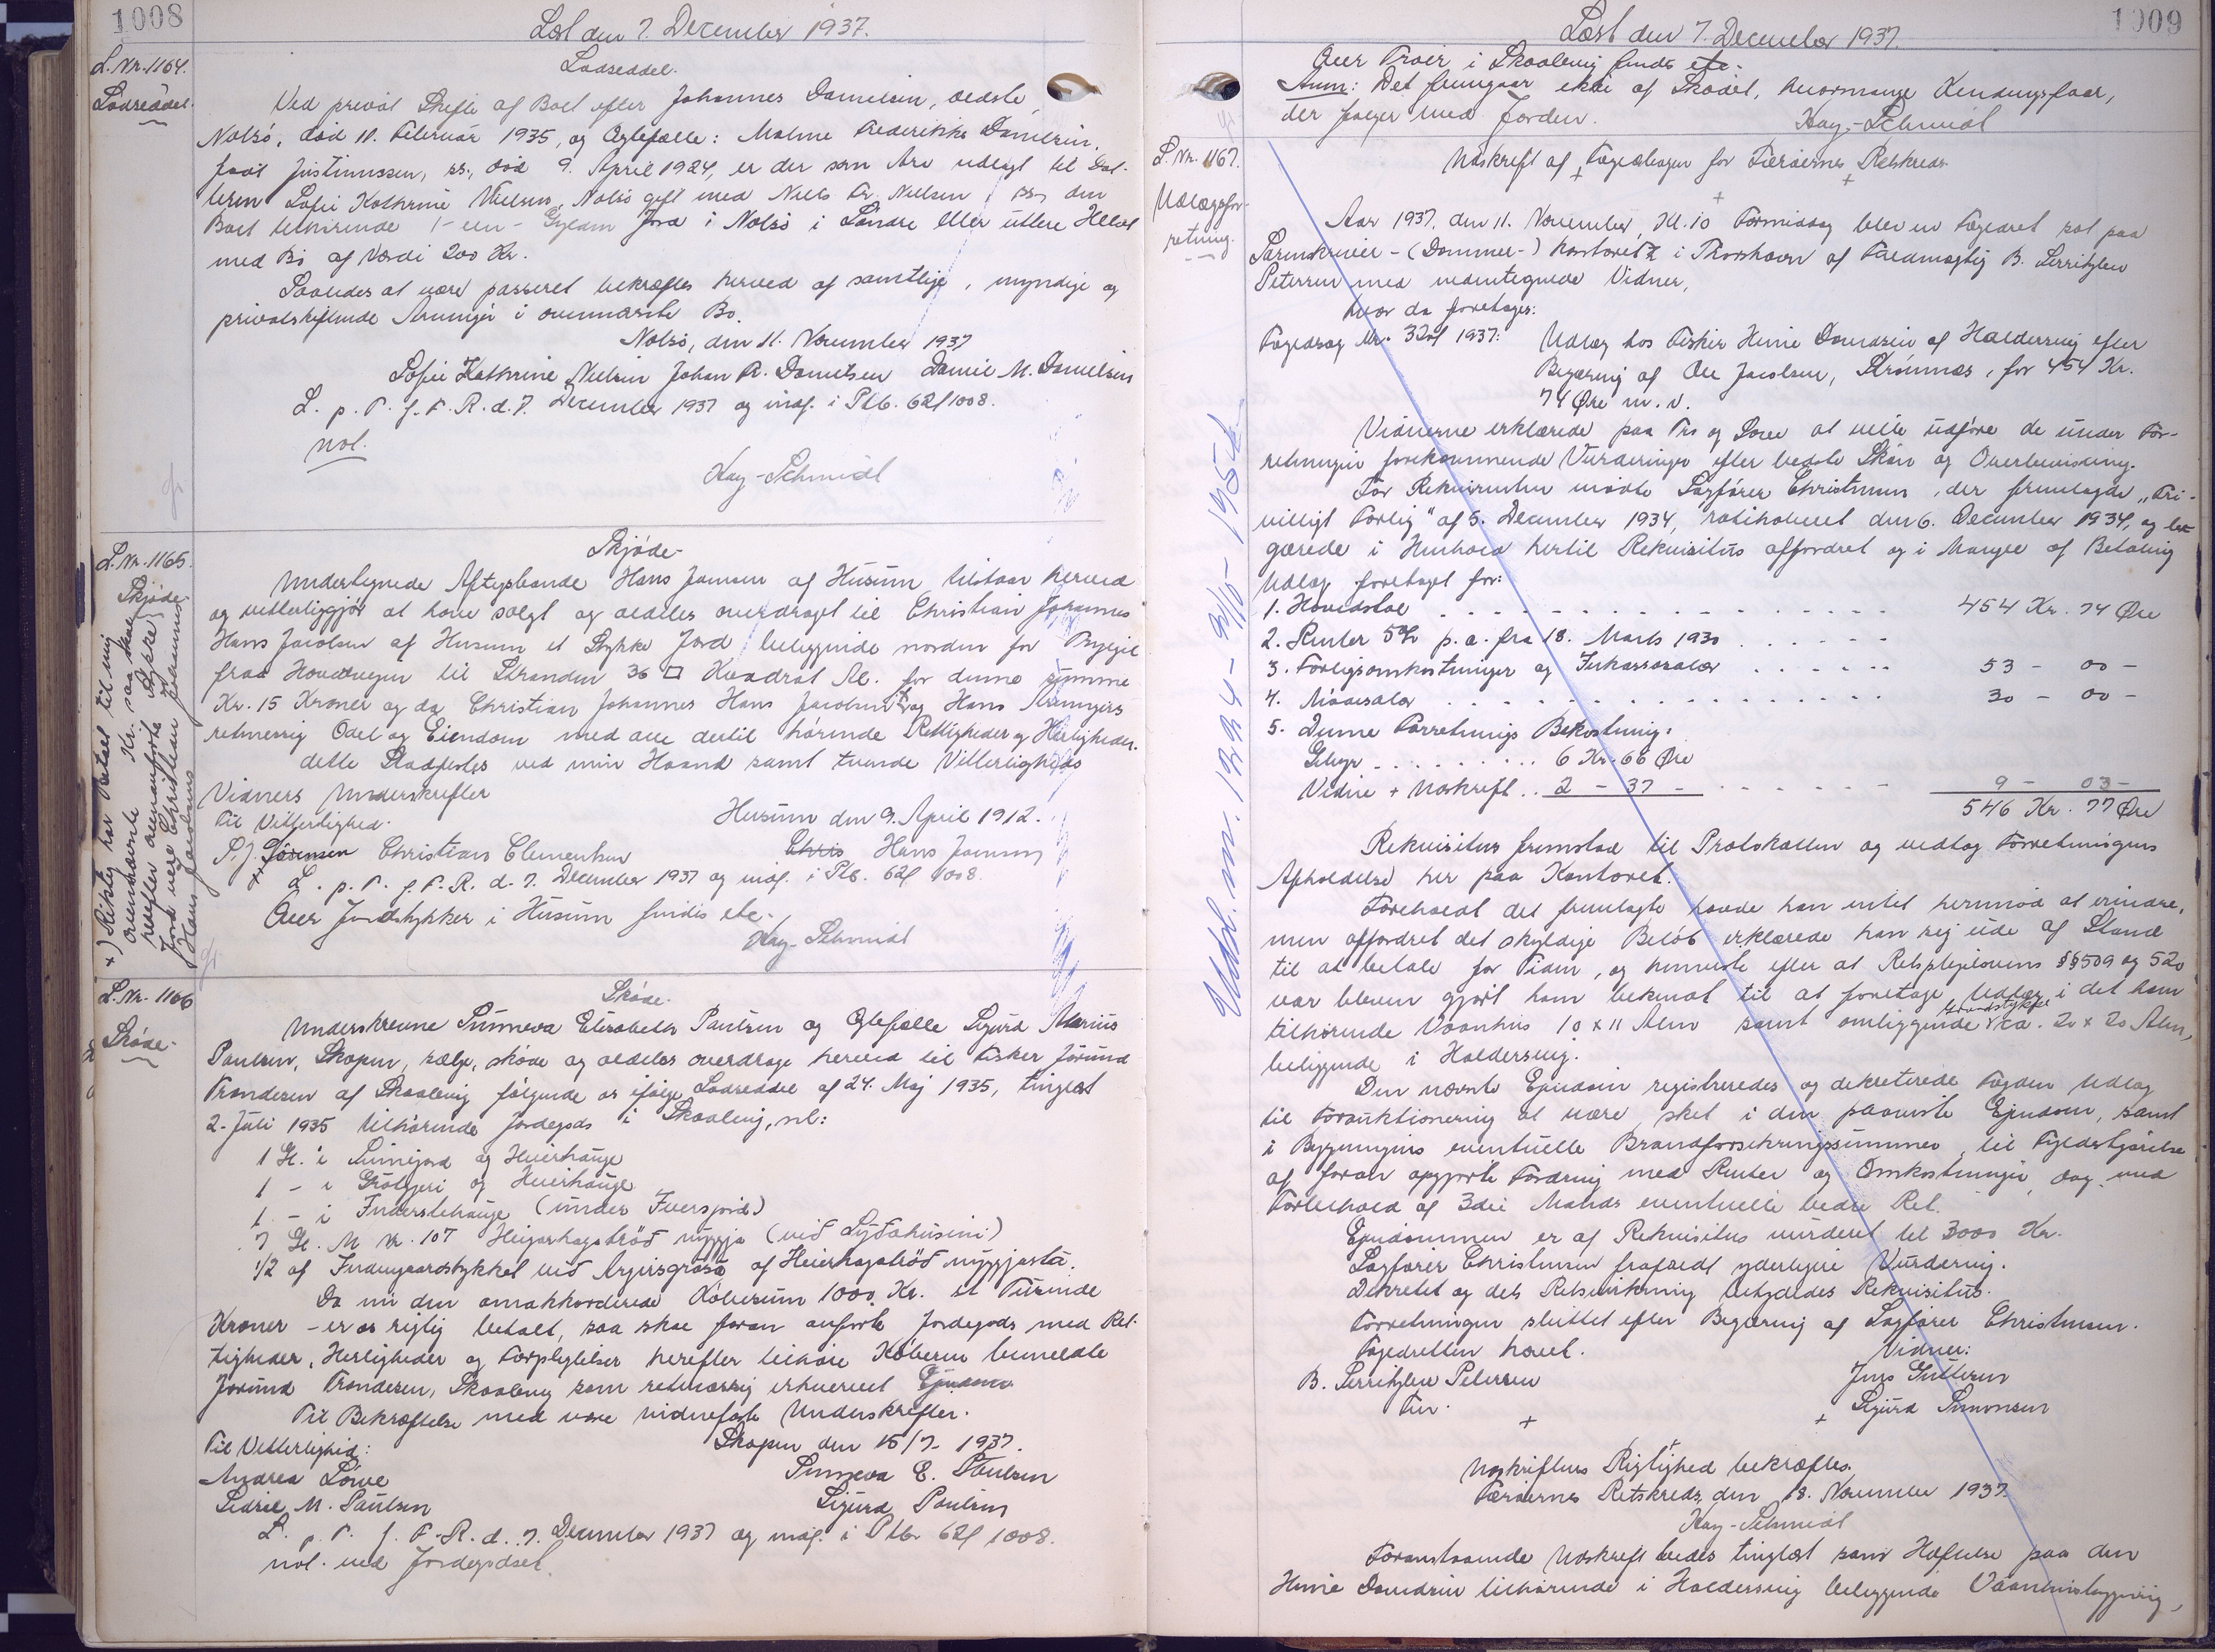 1008
Læst den 7. December 1937.
L. Nr. 1164.
Lodseddel.
Lodseddel.
Ved privat Skifte af Boet efter Johannes Danielsen, ældste,
Nolsö, död 11. Februar 1935, og Ægtefælle: Malene Frederikke Danielsen,
født Justinussen, ss., død 9. April 1924, er der som Arv udlagt til Dat-
teren Sofie Kathrine Nielsen, Nolsö gift med Niels Fr. Nielsen ss, den
Boet tilhörende 1 - een - Gylden Jord i Nolsö i Söndre Eller uttere Helvt
med Bö af Værdi 200 Kr.
Saaledes at være passeret bekræftes herved af samtlige, myndige og
privatskiftende Arvinger i ovennævnte Bo.
Nolsö, den 11. November 1937
Sofie Kathrine Nielsen Johan A. Danielsen Daniel M. Danielsen
L. p. T. f. F. R. d. 7. December 1937 og indf. i Ptb. 62f 1008.
not.
Kay-Schmidt
L. Nr. 1165.
Skjøde
Skjöde-
Undertegnede Aftægtsbonde Hans Joensen af Húsum tilstaar herved
og vitterliggjör at have solgt og aldeles overdraget til Christian Johannes
Hans Jacobsen af Husum et Stykke Jord beliggende norden for Bygjil
fraa Hovedvegen til Stranden 36 □ Kvadrat Al. for denne summe
Kr. 15 Kroner og da Christian Johannes Hans Jacobsen +) og Hans Arvingers
retmessig Odel og Eiendom med alle dertil hörende Rettigheder og Herligheder.
dette Stadfestes ved min Haand samt tvende Vitterligheds
Vidners Underskrefter
Til Vitterlighed.
Husum den 9. April 1912.
P. J. Sörensen Christian Clementsen
Chris Hans Joensen
+) Riktig har betalt til mig
ovennævnte Kr. saa skal
herefter anmanförte Stykke
Jord være Christian Johannes
Hans Jacobsens
L. p. T. f. F. R. d. 7. December 1937 og indf. i Ptb. 62f 1008.
Over Jordstykker i Húsum findes etc.
Kay-Schmidt
L. Nr. 1166
Sköde-
Sköde.
Underskrevne Sunneva Elisabeth Paulsen og Ægtefælle Sigurd Marius
Paulsen, Skopun, sælge, sköde og aldeles overdrage herved til Fisker Jörund
Trondesen af Skaalevig fölgende os ifölge Lodseddel af 24. Maj 1935, tinglæst
2. Juli 1935 tilhörende Jordegods i Skaalevig, nl:
1 Gl. i Sumejord og Heierhauge
1 - i Grótgeri og Heierhauge
1 - i Innerstehauge (under Fversjord)
7 Gl. M nr. 107 Heigarhagatröð nyggja (við Sydahúsini)
1/2 af Indengaardstykket við Argirsgrösta af Heierhagatröð nyggjasta.
Da nu den omakkorderede Köbesum 1000 Kr. et Túsinde
Kroner - er os rigtig betalt, saa skal foran anförte Jordegods med Ret-
tigheder, Herligheder og Forpligtelser herefter tilhöre Köberen bemeldte
Jörund Trondesen, Skaalevig som retmæssig erhvervet Ejendom
Til Bekræftelse med vore vidnefaste Underskrefter.
Til Vitterlighed:
Skopun den 15/7- 1937.
Andrea Löwe
Sunneva E. Paulsen
Sedril M. Paulsen
Sigurd Paulsen
L. p. T. f. F. R. d. 7. December 1937 og indf. i Ptb. 62f 1008.
not. ved Jordegodset.
1009
Læst den 7. December 1937.
Over Troer i Skaalevig findes etc.
Anm: Det fremgaar ikke af Skødet, hvormange Kendingsfaar,
der følger med Jorden.
Kay-Schmidt
L. Nr. 1167.
Udlægsfor-
retning.
Udskrift af Fogedbogen for Færöernes Retskreds
Aar 1937, den 11. November, Kl. 10 Formiddag blev en Fogedret sat paa
Sorenskriver - (Dommer-) kontoret i Thorshavn af Fuldmægtig B. Serritzlew
Petersen med undertegnede Vidner,
hvor da foretages:
Fogedsag Nr. 32af 1937: Udlæg hos Fisker Heine Danielsen af Haldersvig efter
Begæring af Ole Jacobsen, Strömnæs, for 454 Kr.
74 Øre m. v.
Vidnerne erklærede paa Tro og Love at ville udføre de under For-
retningen forekommende Vurderinger efter bedste Skön og Overbevisning.
For Rekvirenten mödte Sagförer Christensen, der fremlagde „Fri-
villigt Forlig" af 5. December 1934, ratihaberet den 6. December 1934, og be-
gærede i Henhold hertil Rekvisitus affordret og i Mangel af Betaling
Udlæg foretaget for:
1. Hovedstol . . . . . 454 Kr. 74 Øre
2. Renter 5% p. a. fra 18. Marts 1930 . . . . .
3. Forligsomkostninger og Inkassosalær . . . . . 53 - 00 -
4. Mödesalær . . . . . 30 - 00 -
5. Denne Forretnings Bekostning:
Gebyr . . . . . 6 Kr. 66 Øre
Vidne + Udskrift . . 2 - 37 - . . . . . 9 - 03 -
546 Kr. 77 Øre
Rekvisitus fremstod til Protokollen og vedtog Forretningens
Afholdelse her paa Kontoret.
Foreholdt det fremlagte havde han intet hermod at erindre,
men affordret det skyldige Beløb erklærede han sig ude af Stand
til at betale for Tiden, og henviste efter at Retsplejelovens §§509 og 520
var bleven gjort ham bekendt til at foretage Udlæg i det ham
tilhörende Vaanhus 10 x 11 Alen samt omliggende Grundstykke ca. 20 x 20 Alen,
beliggende i Haldersvig.
Den nævnte Ejendom registreredes og dekreterede Fogden Udlæg
til Forauktionering at være sket i den paaviste Ejendom, samt
i Bygningens eventuelle Brandforsikringssummer til Fyldestgörelse
af foran opgjorte Fordring med Renter og Omkostninger, dog med
Forbehold af 3die Mands eventuelle bedre Ret.
Ejendommen er af Rekvisitus vurderet til 3000 Kr.
Sagförer Christensen frafaldt yderligere Vurdering.
Dekretet og dets Retsvirkning betydedes Rekvisitus.
Forretningen sluttet efter Begæring af Sagförer Christensen.
Fogedretten hævet.
Vidner:
B. Serritzlew Petersen
Jens Guttesen
Fm.
Sigurd Simonsen
Udskriftens Rigtighed bekræftes.
Færöernes Retskreds, den 18. November 1937.
Kay-Schmidt
Foranstaaende Udskrift bedes tinglæst som Hæftelse paa den
Heine Danielsen tilhörende i Haldersvig beliggende Vaanhusbygning,